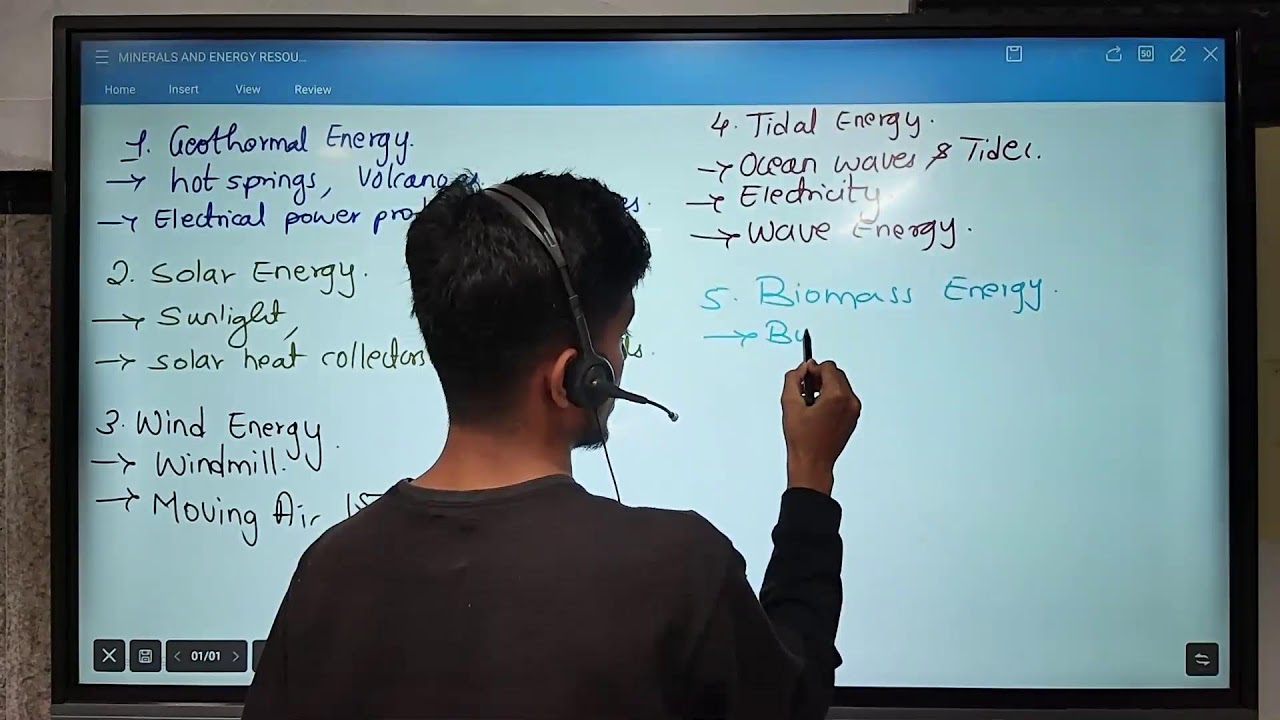 MINERALS AND ENERGY RESOU...
50
Home Insert View Review
1. Geothormal Energy.
→ hot springs, Volcanoes
→ Electrical power
2. Solar Energy.
→ Sunlight,
→ solar heat collectors
3. Wind Energy.
→ Windmill.
→ Moving Air
4. Tidal Energy.
→ Ocean waves & Tides.
→ Electricity.
→ Wave Energy.
5. Biomass Energy.
→ Bu
01/01